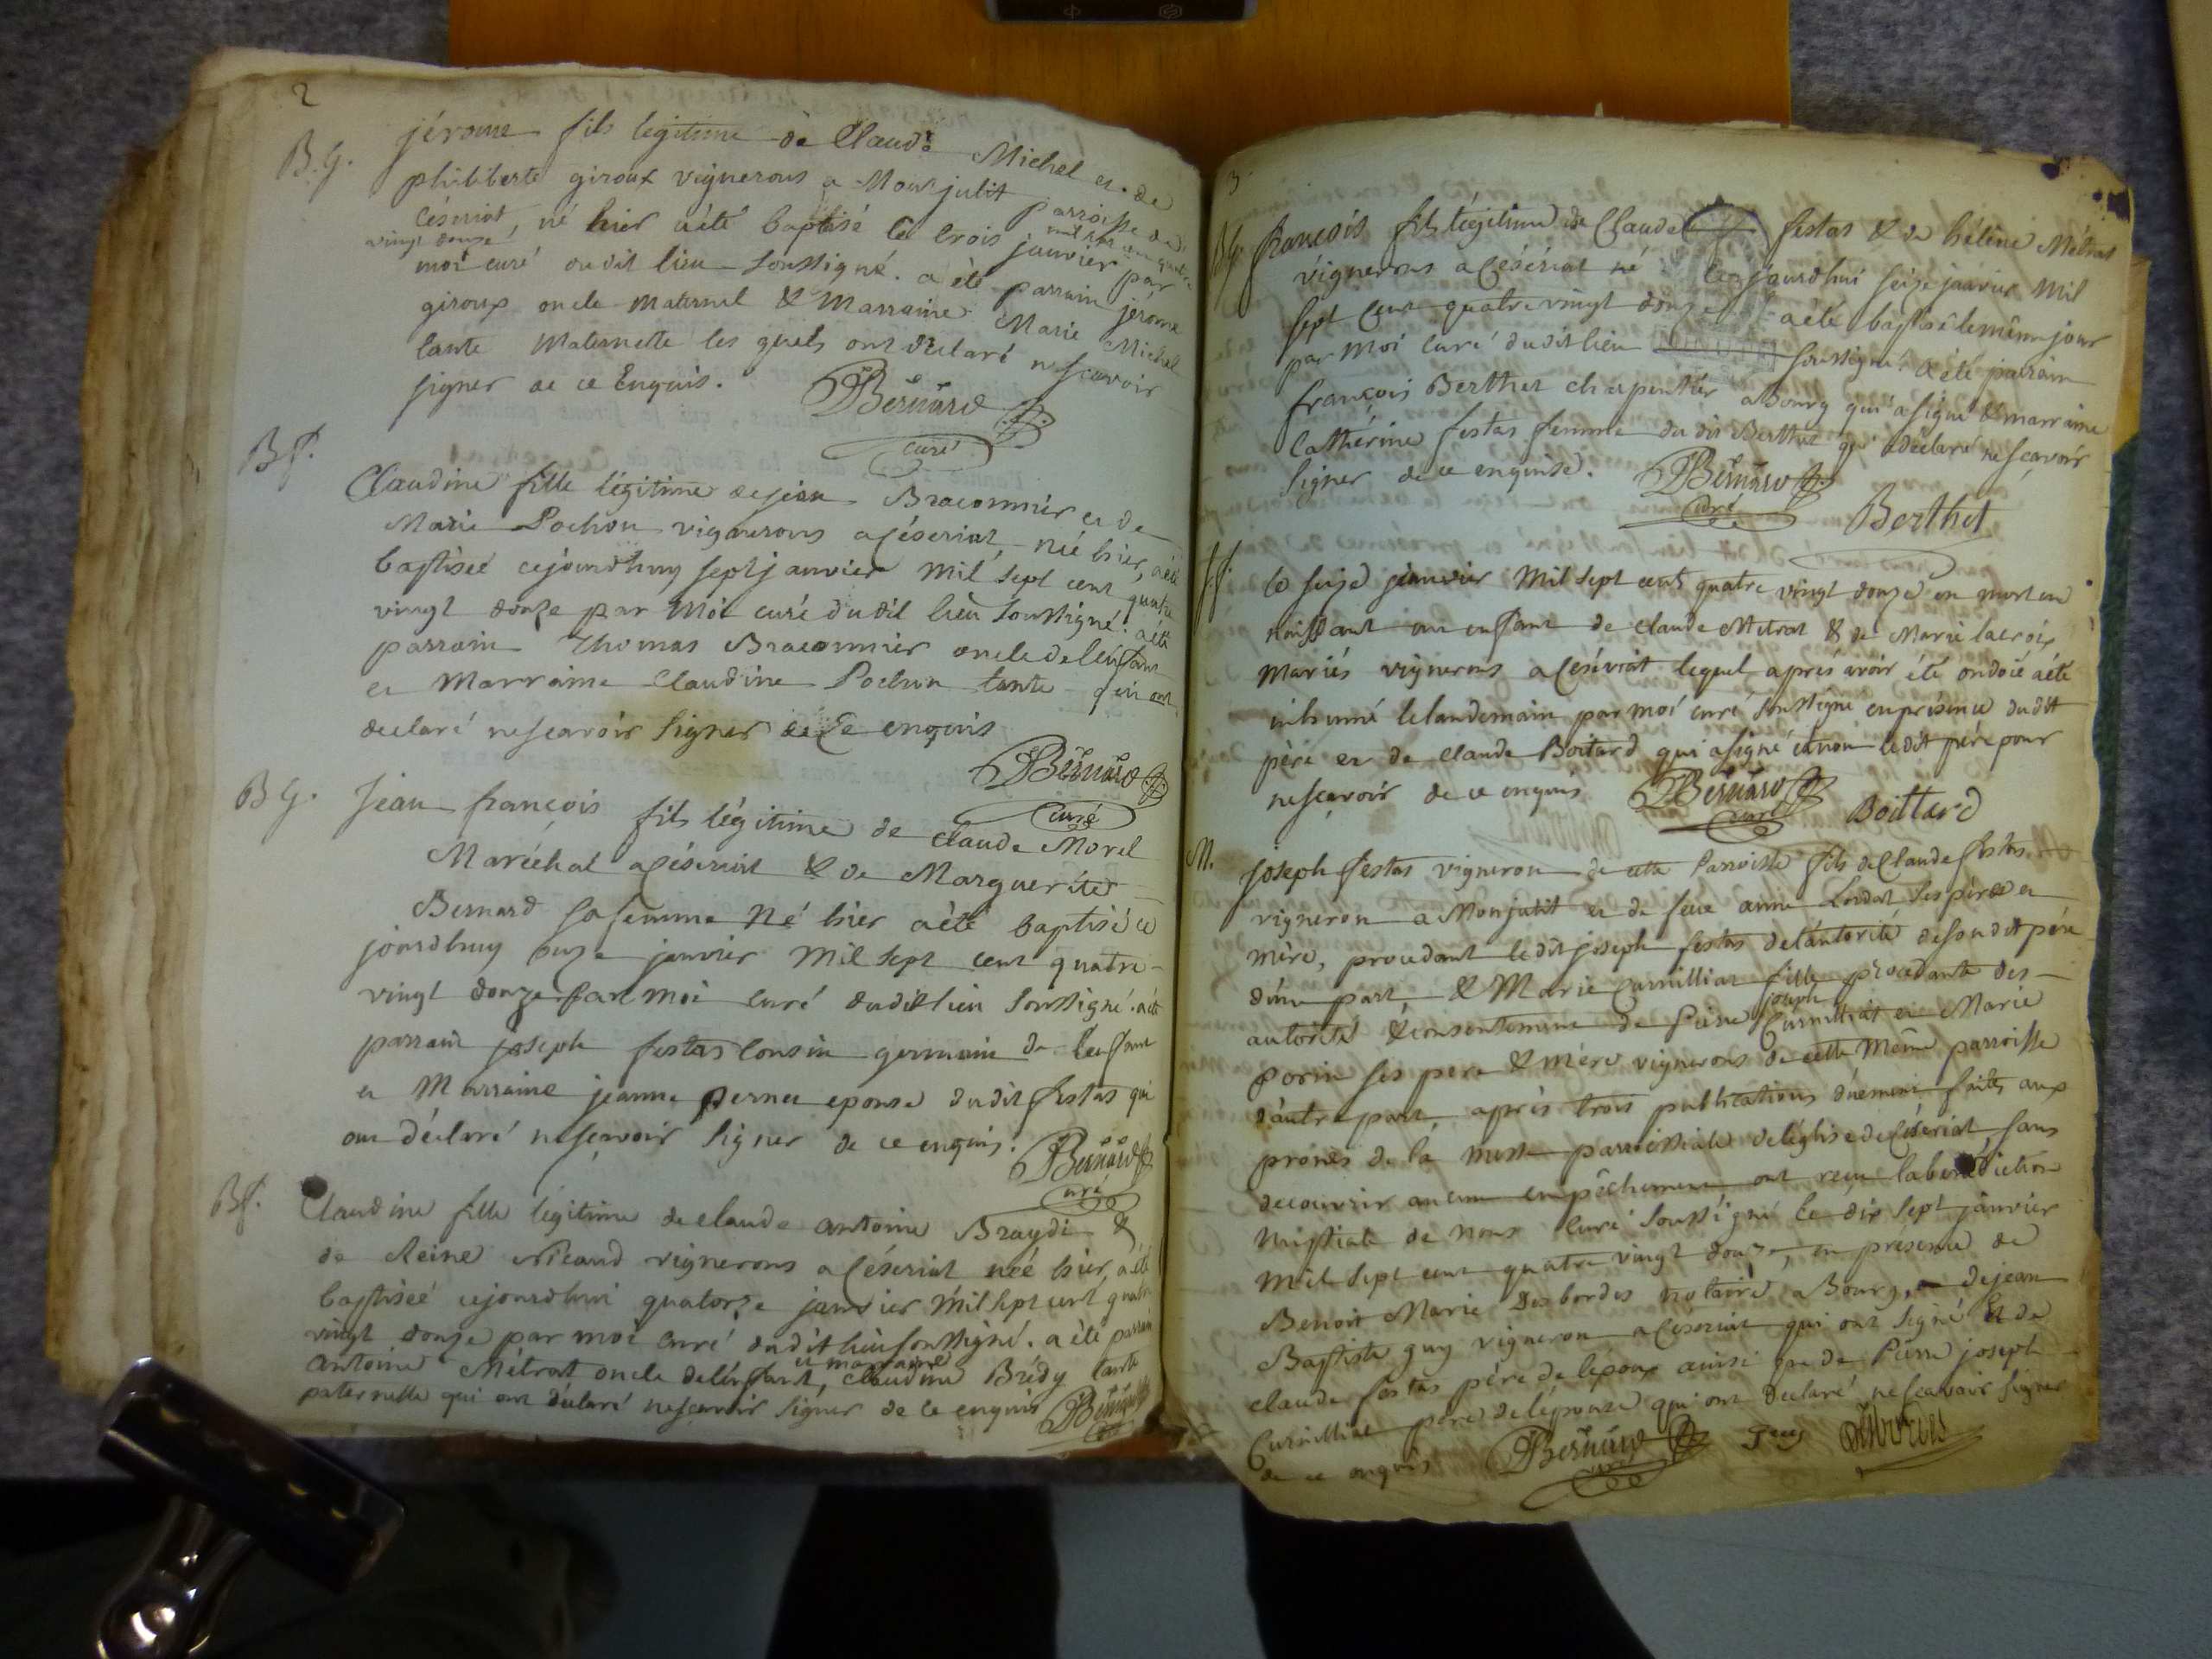 2
B.G. jérome fils legitime de Claude Michel et de
philiberte giroux vignerons a Monjulit parroisse de
Céseriat, né hier a été baptisé le trois janvier mil sept cent quatre
vingt douze, par
moi curé dudit lieu soussigné. a été parrain jérome
giroux oncle maternel & Marraine Marie Michel
tante Maternelle les quels ont déclaré ne scavoir
signer de ce Enquis. Bernard
curé
Bf. Claudine fille légitime de jean Braconnier et de
Marie Pochon vignerons a Céseriat, née hier, a été
baptiseé cejourdhuy sept janvier Mil sept cent quatre
vingt douze par Moi curé dudit lieu soussigné. a été
parrain Thomas Braconnier oncle de lenfant
et Marraine Claudine Pochon tante qui ont
declaré ne scavoir signer de Ce enquis
Bernard
curé
BG. Jean françois fils légitime de claude Morel
Maréchal a Céseriat & de Marguerite
Bernard sa femme Né hier a été baptisé ce
jourdhuy onze janvier Mil sept cent quatre
vingt douze par moi curé dudit lieu soussigné. a été
parrain joseph festas cousin germain de lenfant
et Marraine jeanne pernet epouse dudit festas qui
ont déclaré ne scavoir signer de ce enquis. Bernard
curé
Bf. Claudine fille légitime de claude antoine Braydi &
de Reine Nicaud vignerons a Céseriat née hier, a été
baptiseé cejourdhui quatorze janvier Mil sept cent quatre
vingt douze par moi curé dudit lieu soussigné. a été parrain
antoine Métrat oncle delenfant, et marraine claudine Brédy tante
paternelle qui ont déclaré ne scavoir signer de ce enquis Bernard
3
BG. françois fils légitime de Claude festas & de héléne Métrat
vignerons a Céseriat né cejourdhui seize janvier Mil
sept cent quatre vingt douze a été baptisé le même jour
par Moi curé dudit lieu soussigné. a été parrain
françois Berthet charpentier a Bourg qui a signé & marraine
Cathérine festas femme dudit Berthet qui a déclaré ne scavoir
signer de ce enquise. Bernard
curé Berthet
le seize janvier Mil sept cent quatre vingt douze est mort en
naissant un enfant de claude Metrat & de Marie lacroix
Mariés vignerons a Céseriat lequel aprés avoir été ondoié a été
inhumé le landemain par moi curé soussigné en présence dudit
pére et de claude Boitard qui a signé et non ledit père pour
ne scavoir de ce enquis Bernard
curé Boittard
M. joseph festas vigneron de cette Parroisse fils de Claude festas
vigneron a Monjulit et de feue anne Lordat ses pére et
mére, procedant ledit joseph festas de lautorité de son dit pére
d'une part, & Marie Curnilliat fille procedante des
autorité & consentement de Pierre joseph Curnilliat et Marie
porin ses pere & mére vignerons de cette même parroisse
d'autre part, aprés trois publications duement faites aux
prônes de la messe parroissiale de léglise de Céseriat, sans
decouvrir aucun enpêchement ont reçu la benediction
nuptiale de nous curé soussigné le dix sept janvier
Mil sept cent quatre vingt douze, en presence de
Benoit Marie Desbordes notaire a Bourg, dejean
Baptiste guy vigneron a Céseriat qui ont signé & de
claude festas pére de lépoux ainsi que de Pierre joseph
Curnilliat pére de lépouse qui ont déclaré ne scavoir signer
de ce enquis Bernard
curé Desbordes